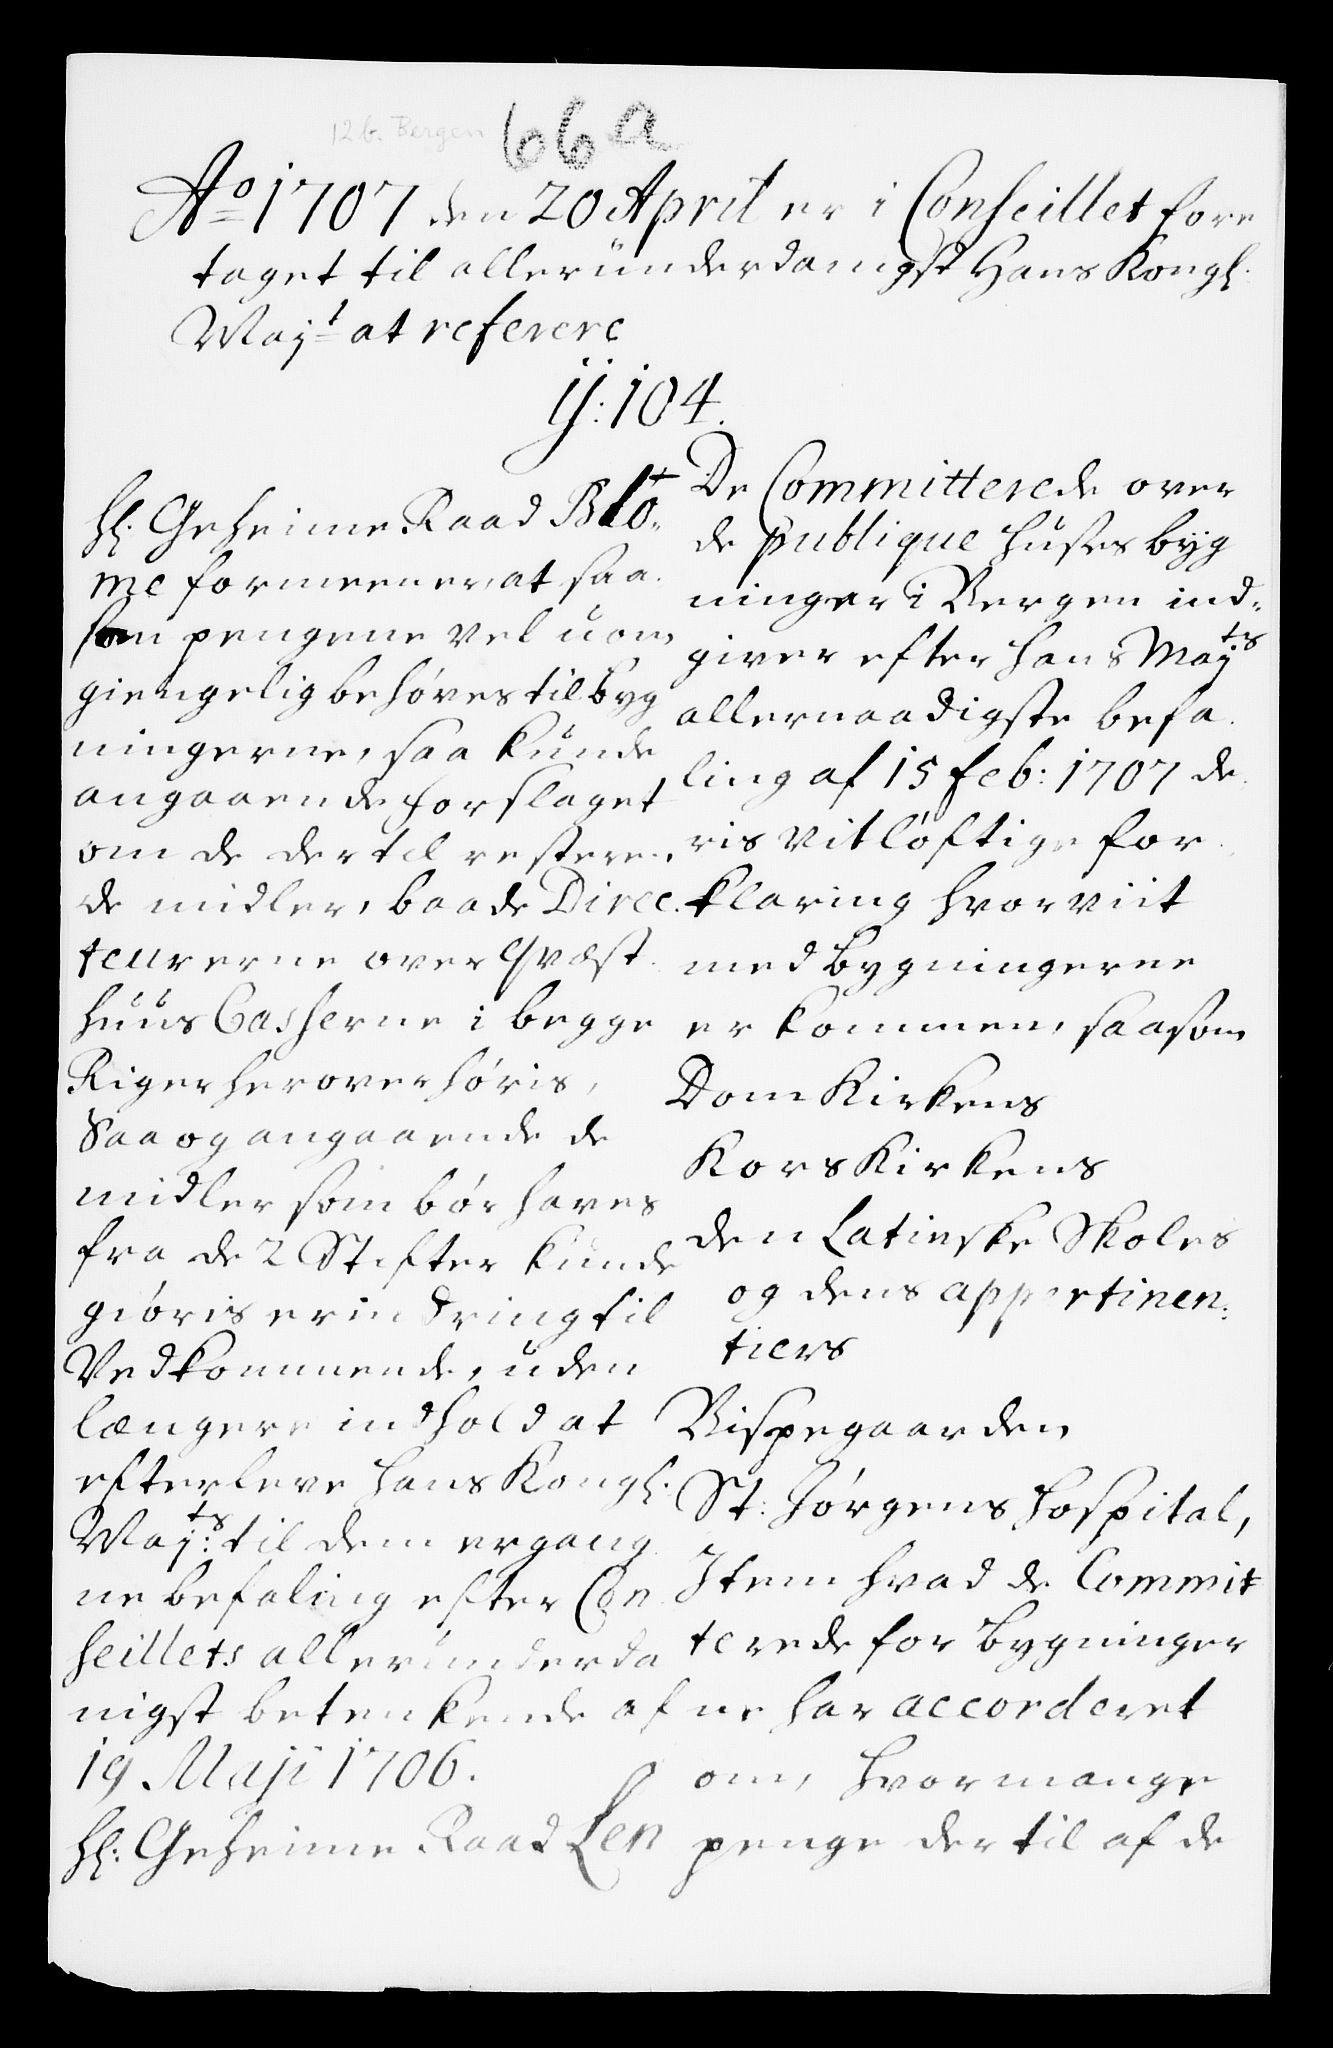 12b. Bergen
66a
Ao 1707 den 20 April er i Conseillet fore
taget til allerunderdanigst Hans Kongl:
Majt at referere
ij: 104.
Hl: Geheime Raad Blo-
me formeener, at saa
som pengene vel uom
giengelig behøves til byg
ningerne, saa kunde
angaaende forslaget
om de dertil resteren
de midler, baade Direc
teurerne over Qvæst
huus Casserne i begge
Riger herover høris,
Saa og angaaende de
midler som bør haves
fra de 2 Stifter kunde
giøris erindring til
Vedkommende, uden
længere indhold at
efterleve Hans Kongl:
Majts: til dem ergang
ne befaling efter Con
seillets allerunderda
nigst betenkende af
19 Maji 1706.
Hl: Geheime Raad Len
De Committerede over
de publique Huses byg
ninger i Bergen ind-
giver efter Hans Majts
allernaadigste befa
ling af 15 Feb: 1707 de
ris vitløftige for
klaring hvor viit
med bygningerne
er kommen, saasom
Dom Kirkens
Kors Kirkens
den Latinske Skoles
og dens appertinen:
tiers
Bispegaarden
St: Jørgens Hospital,
Item hvad de Commit
terede for bygninger
ne har accorderet
om, hvormange
penge dertil af de